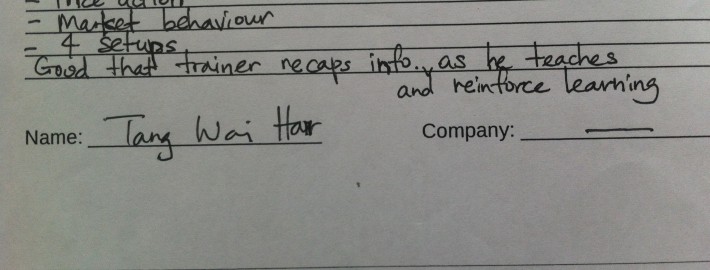 - Price action
- Market behaviour
- 4 setups
Good that trainer recaps info., as he teaches
and reinforce learning
Name: Tang Wai Har Company: —